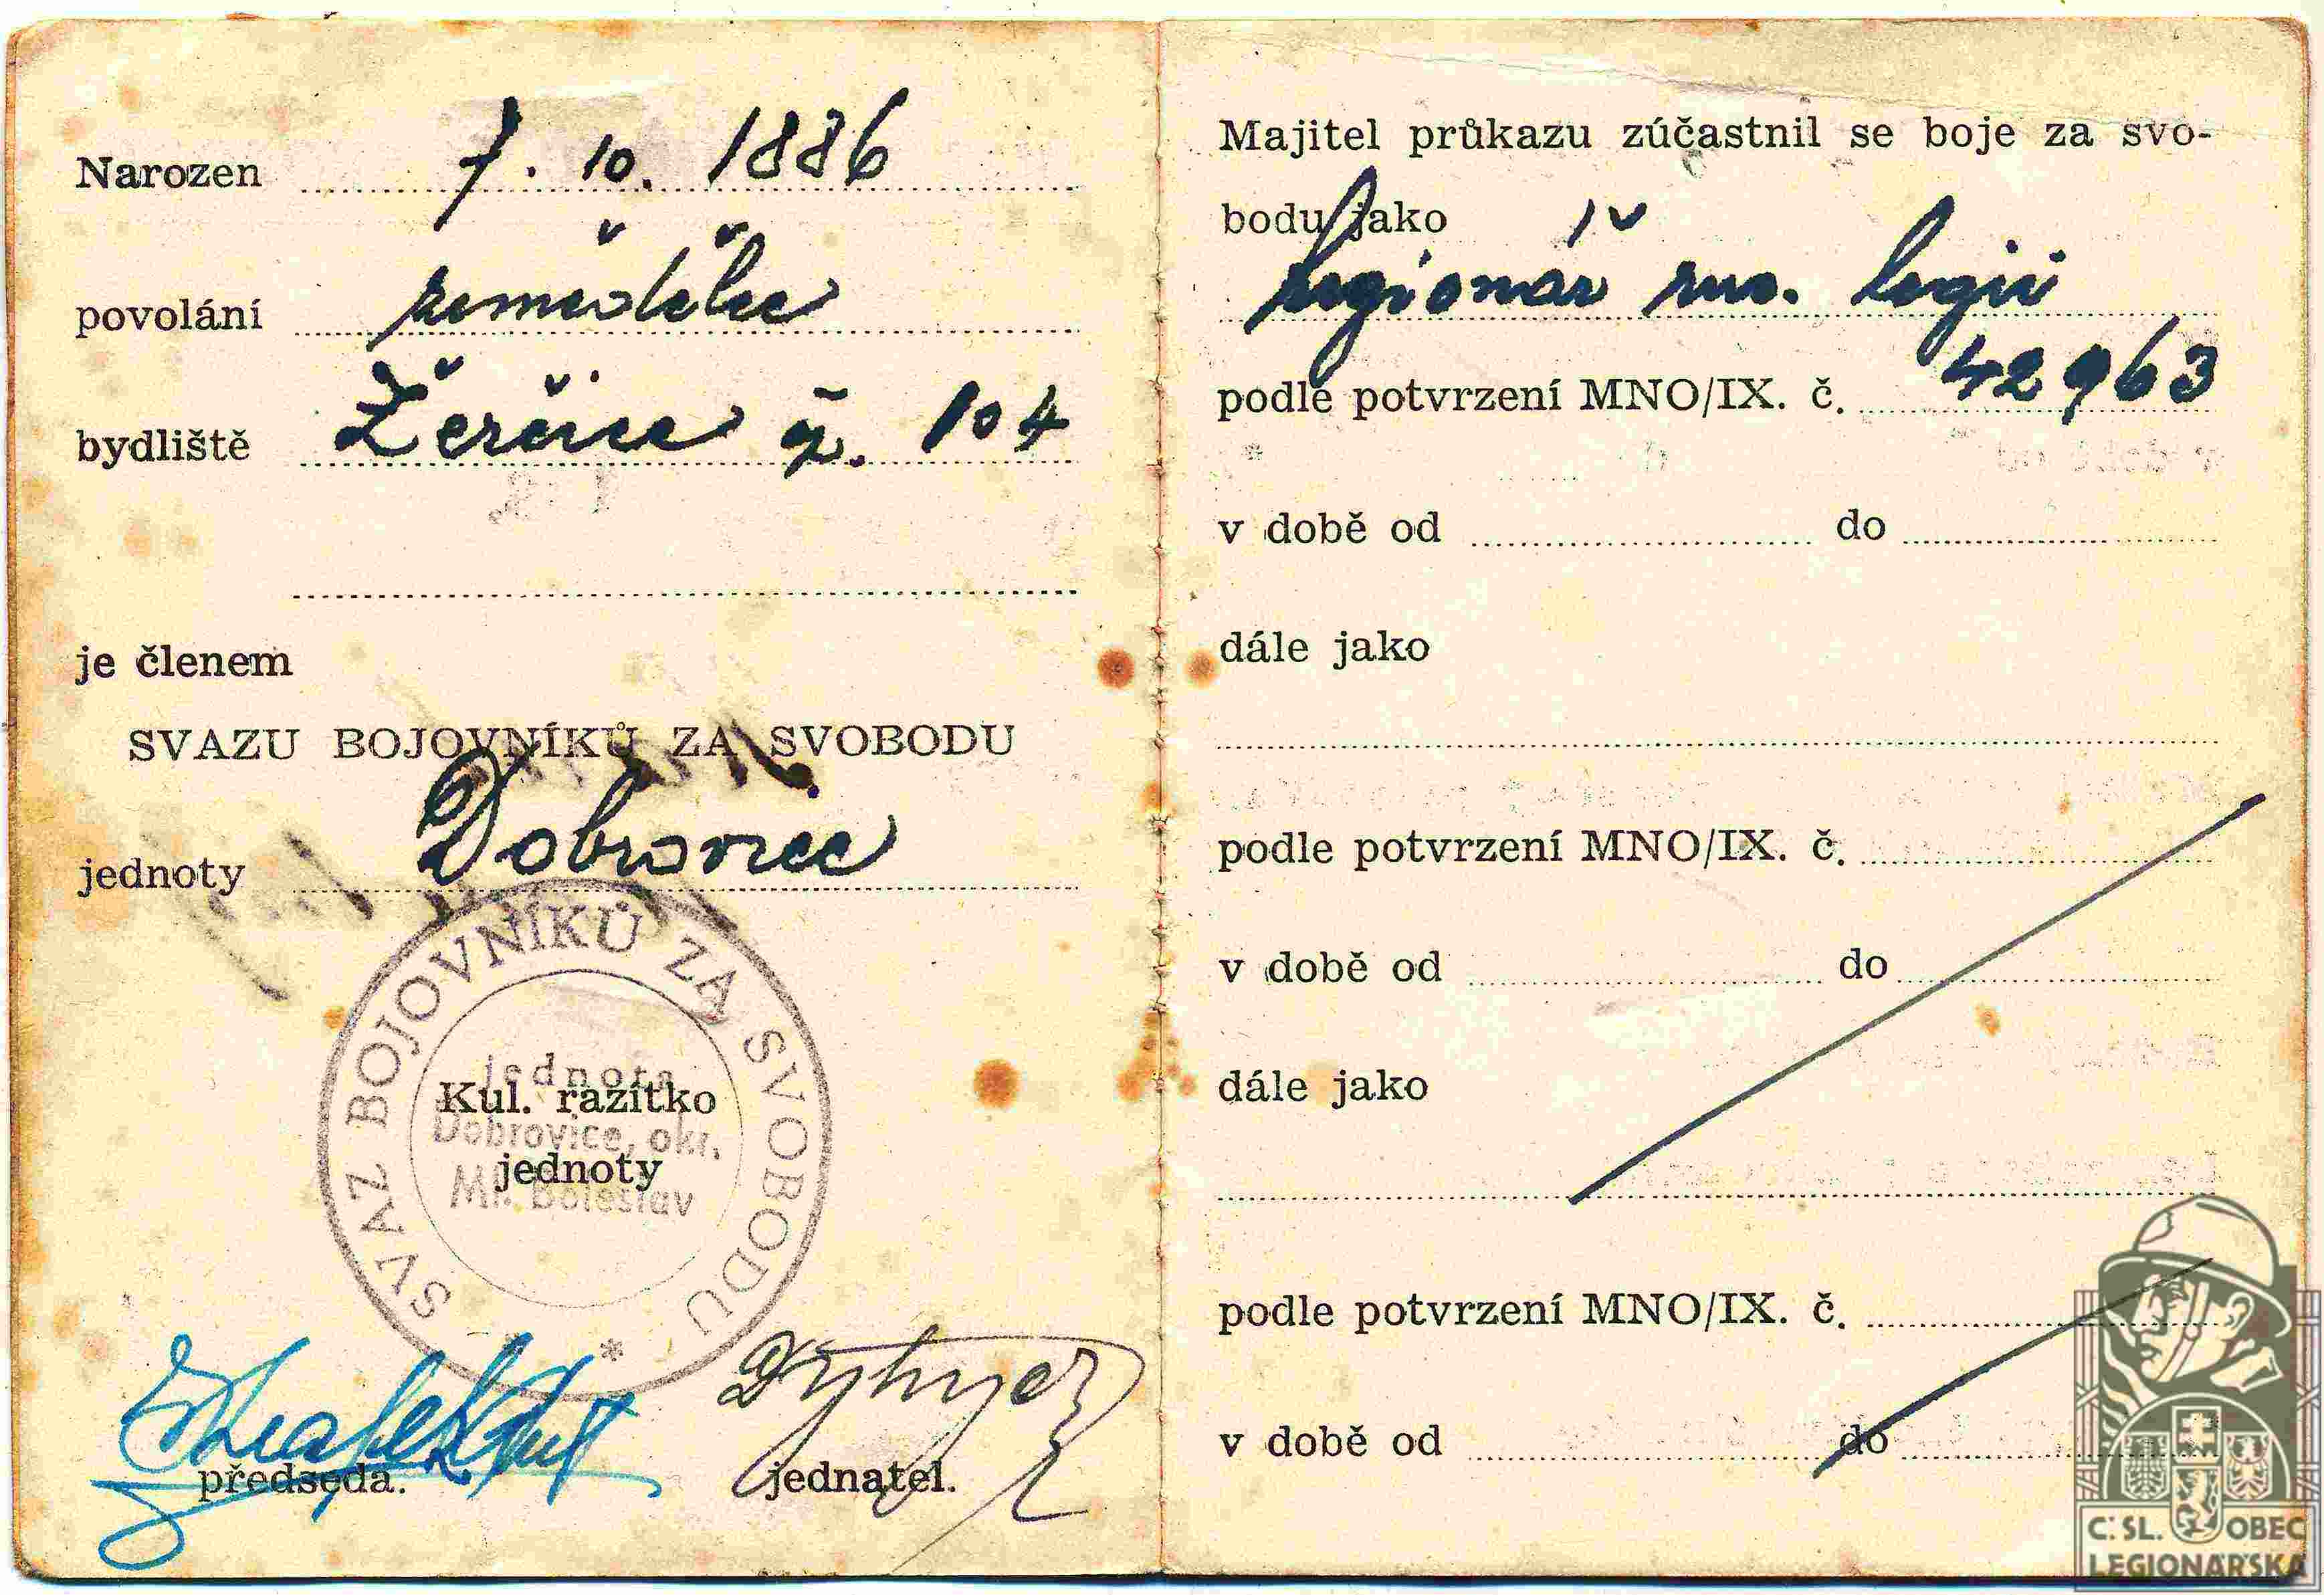 Narozen 7. 10. 1886
povolání zemědělec
bydliště Žerčice čp. 104
je členem
SVAZU BOJOVNÍKŮ ZA SVOBODU
jednoty Dobrovice
SVAZ BOJOVNÍKŮ ZA SVOBODU *
Jednota
Kul. razítko
Dobrovice, okr.
jednoty
Ml. Boleslav
předseda.
jednatel.
Majitel průkazu zúčastnil se boje za svo-
bodu jako
legionář rus. legií
podle potvrzení MNO/IX. č. 42963
v době od do
dále jako
podle potvrzení MNO/IX. č.
v době od do
dále jako
podle potvrzení MNO/IX. č.
v době od do
Č. SL. OBEC
LEGIONÁŘSKÁ